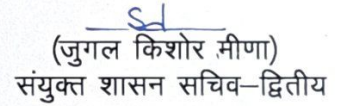 Sd
(जुगल किशोर मीणा)
संयुक्त शासन सचिव–द्वितीय